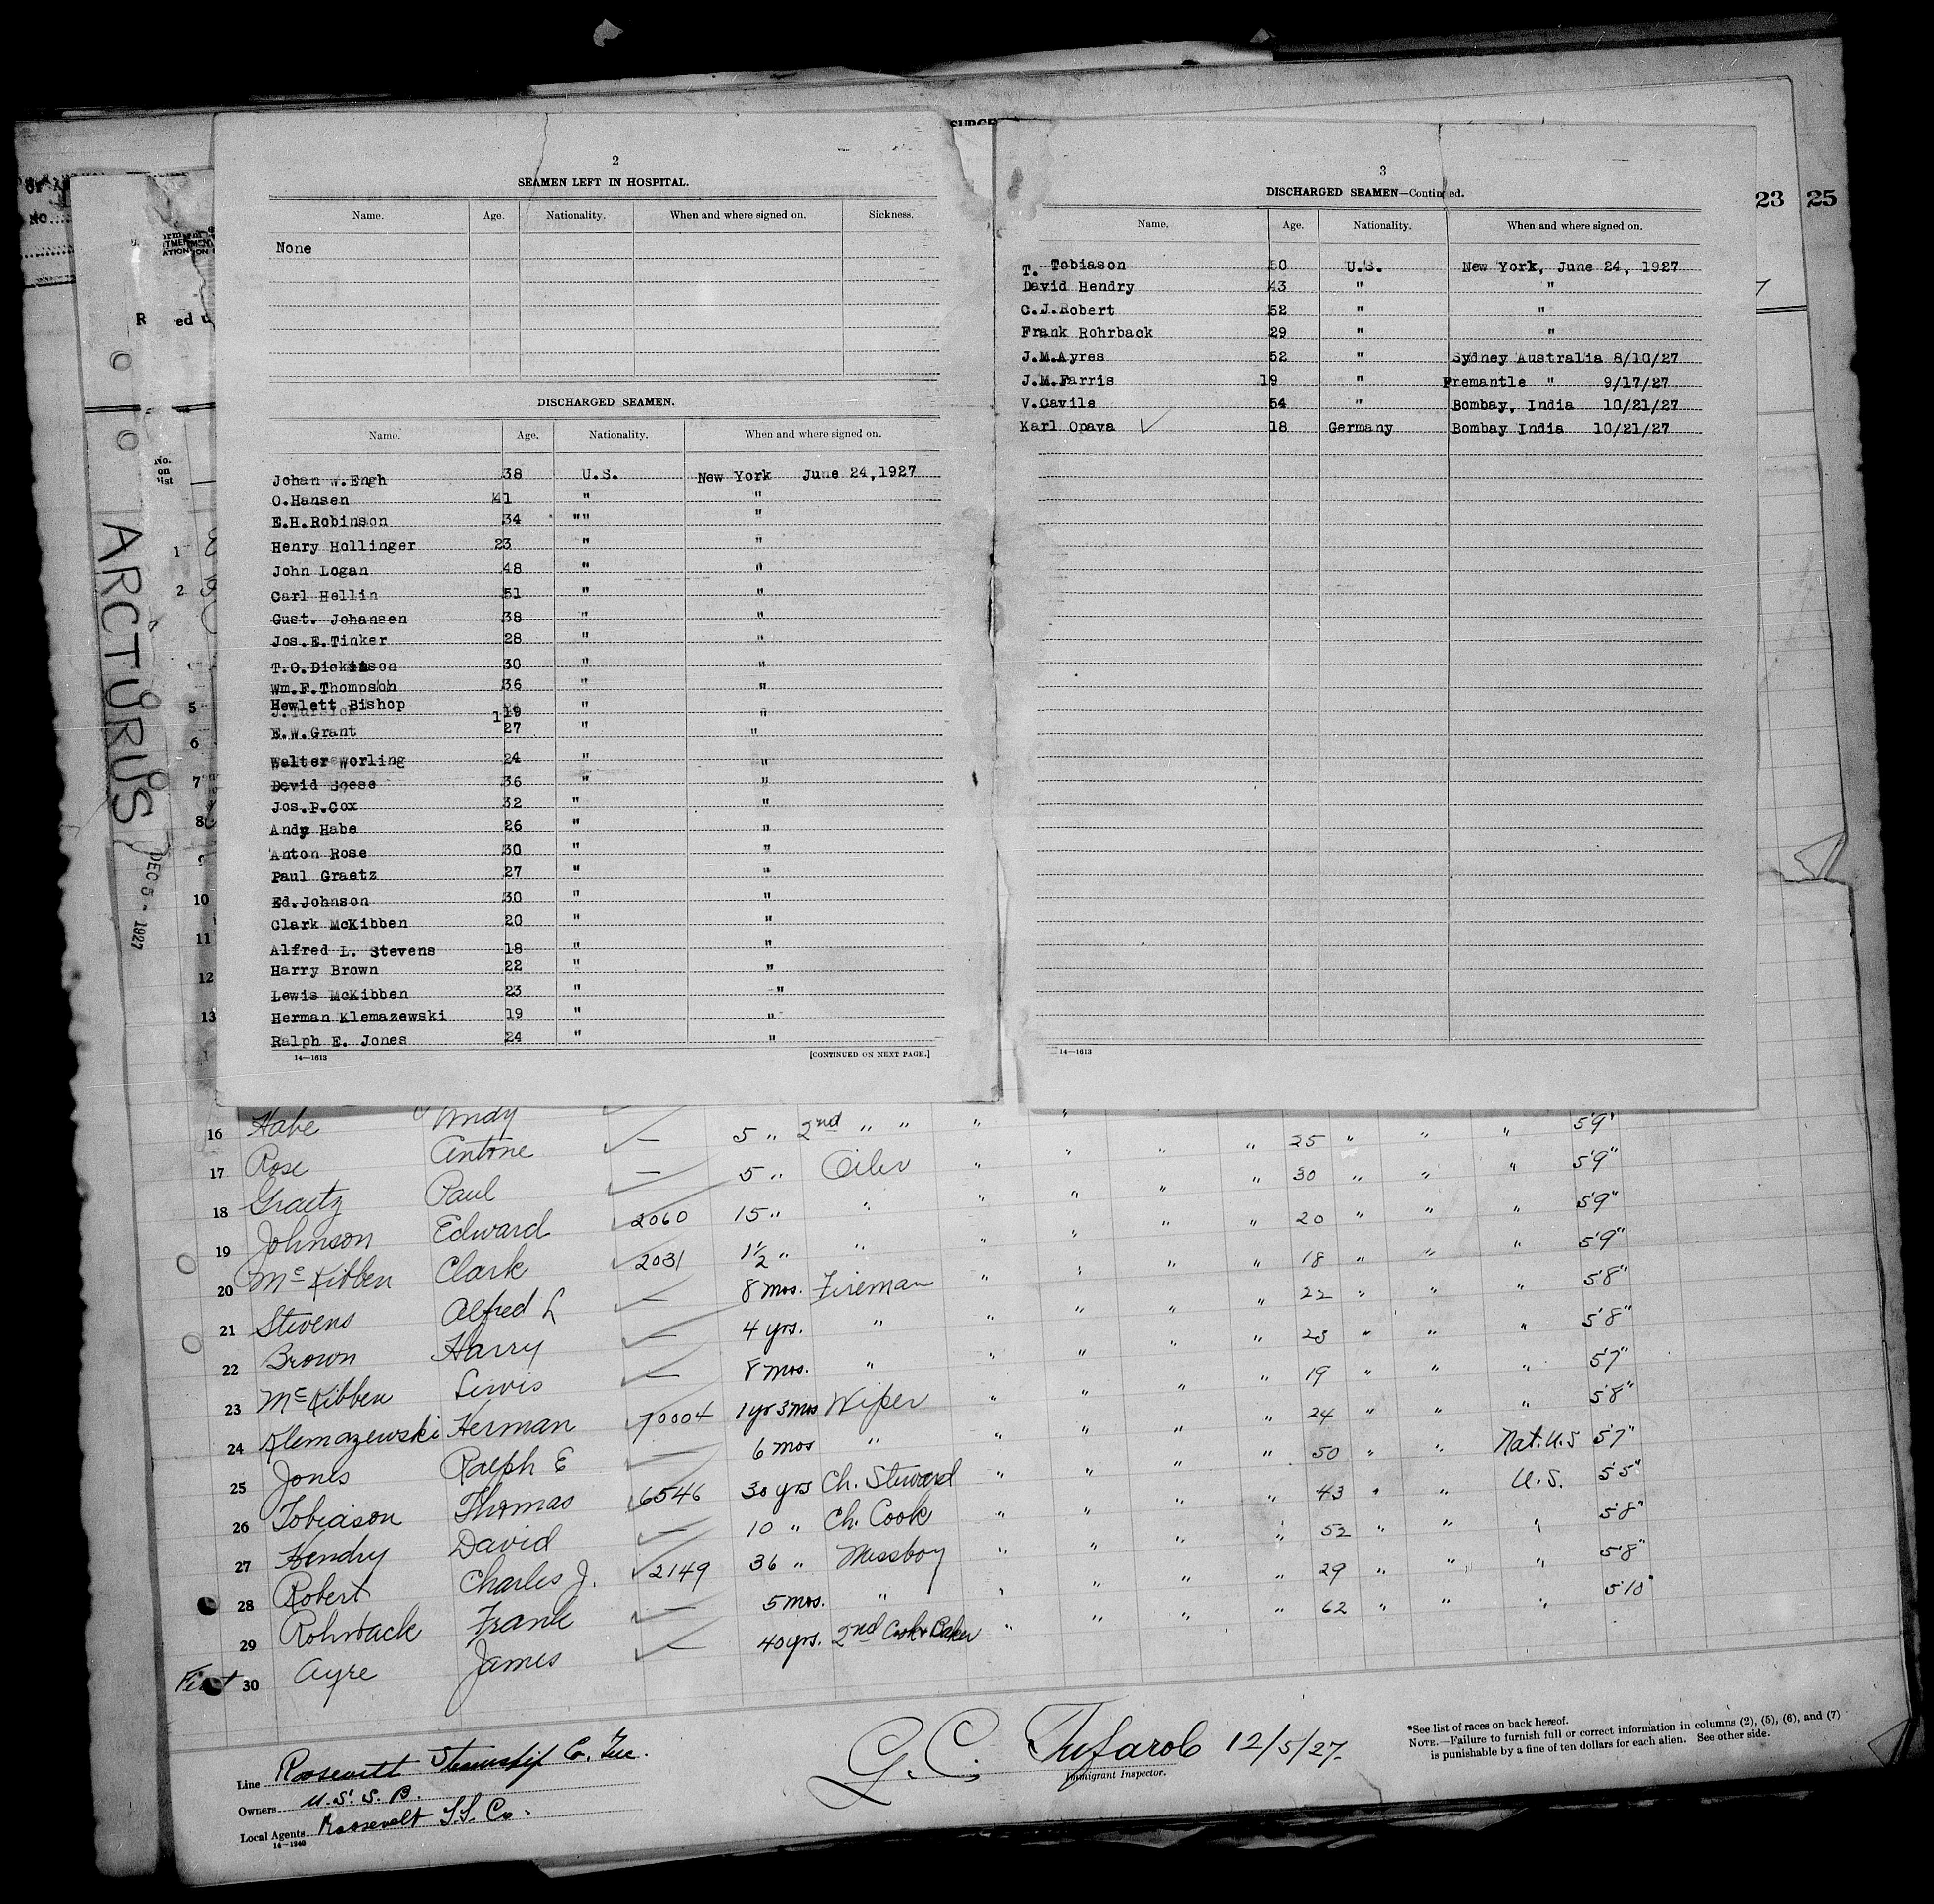 SURGE
23 25
ARCTURUS
DEC 5 - 1927
No.
on
list
2
SEAMEN LEFT IN HOSPITAL.
Name. Age. Nationality. When and where signed on. Sickness.
None
DISCHARGED SEAMEN.
Name. Age. Nationality. When and where signed on.
Johan W.Engh 38 U.S. New York June 24,1927
O.Hansen 41 " "
E.H.Robinson 34 "" "
Henry Hollinger 23 " "
John Logan 48 " "
Carl Hellin 51 " "
Gust. Johansen 38 " "
Jos.E.Tinker 28 " "
T.O.Dickinson 30 " "
Wm.F.Thompson 36 " "
Hewlett Bishop 19 " "
E.W.Grant 27 " "
Walter Worling 24 " "
David 36 " "
Jos.P.Cox 32 " "
Andy Habe 26 " "
Anton Rose 30 " "
Paul Graetz 27 " "
Ed.Johnson 30 " "
Clark McKibben 20 " "
Alfred L. Stevens 18 " "
Harry Brown 22 " "
Lewis McKibben 23 " "
Herman Klemazewski 19 " "
Ralph E. Jones 24 " "
14—1613 [CONTINUED ON NEXT PAGE.]
3
DISCHARGED SEAMEN—Continued.
Name. Age. Nationality. When and where signed on.
T. Tobiason 50 U.S. New York, June 24, 1927
David Hendry 43 " "
C.J.Robert 52 " "
Frank Rohrback 29 " "
J.M.Ayres 52 " Sydney Australia 8/10/27
J.M.Farris 19 " Fremantle " 9/17/27
V.Cavile 54 " Bombay, India 10/21/27
Karl Opava ✓ 18 Germany Bombay India 10/21/27
14—1613
1
2
5
6
7
8
9
10
11
12
13
16 Habe Andy ✓ — 5 " 2nd " " " " " " 25 " " " 5'9"
17 Rose Antone ✓ — 5 " Oiler " " " " 30 " " " 5'9"
18 Graetz Paul ✓ 2060 15 " " " " " " 20 " " " 5'9"
19 Johnson Edward ✓ 2031 1½ " " " " " " 18 " " " 5'9"
20 McKibben Clark ✓ — 8 mos. Fireman " " " " 22 " " " 5'8"
21 Stevens Alfred L ✓ — 4 yrs. " " " " " 23 " " " 5'8"
22 Brown Harry ✓ — 8 mos. " " " " " 19 " " " 5'7"
23 McKibben Lewis ✓ 70004 1 yr 3 mos Wiper " " " " 24 " " " 5'8"
24 Klemazewski Herman ✓ — 6 mos " " " " " 50 " " Nat. U.S 5'7"
25 Jones Ralph E ✓ 6546 30 yrs Ch. Steward " " " " 43 " " U.S. 5'5"
26 Tobiason Thomas ✓ — 10 " Ch. Cook " " " " 52 " " " 5'8"
27 Hendry David ✓ 2149 36 " Messboy " " " " 29 " " " 5'8"
28 Robert Charles J. ✓ — 5 mos. " " " " " 62 " " " 5'10"
29 Rohrback Frank ✓ — 40 yrs. 2nd Cook & Baker "
30 Ayre James
Line Roosevelt Steamship Co. Inc.
Owners U.S.S.B.
Local Agents Roosevelt S.S. Co.
14—1240
G.C. Tufarolo 12/5/27
Immigrant Inspector.
*See list of races on back hereof.
NOTE.—Failure to furnish full or correct information in columns (2), (5), (6), and (7)
is punishable by a fine of ten dollars for each alien. See other side.